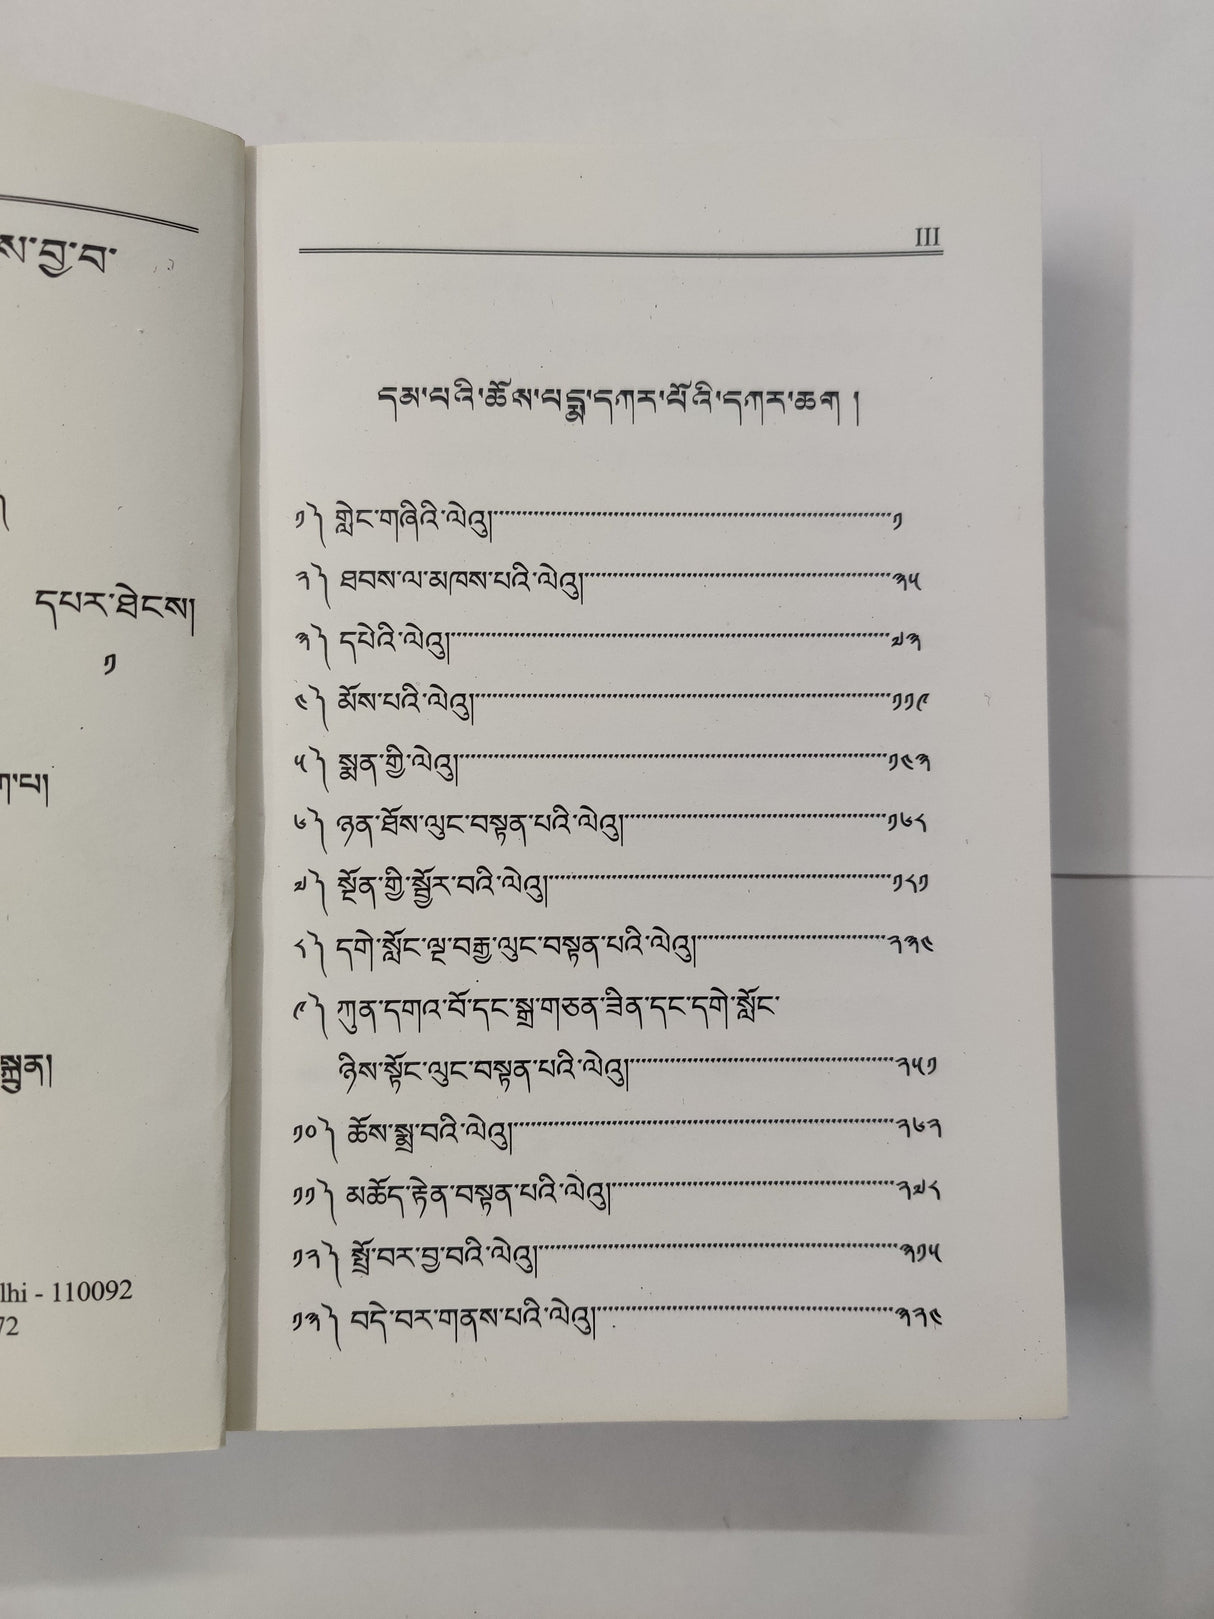 ས་བྱ་བ་
དཔར་ཐེངས།
༡
ག་པ།
སྐྲུན།
lhi - 110092
72
III
དམ་པའི་ཆོས་པདྨ་དཀར་པོའི་དཀར་ཆག །
༡༽ གླེང་གཞིའི་ལེའུ།……༡
༢༽ ཐབས་ལ་མཁས་པའི་ལེའུ།……༣༥
༣༽ དཔེའི་ལེའུ།……༧༣
༤༽ མོས་པའི་ལེའུ།……༡༡༩
༥༽ སྨན་གྱི་ལེའུ།……༡༤༣
༦༽ ཉན་ཐོས་ལུང་བསྟན་པའི་ལེའུ།……༡༦༨
༧༽ སྔོན་གྱི་སྦྱོར་བའི་ལེའུ།……༡༨༡
༨༽ དགེ་སློང་ལྔ་བརྒྱ་ལུང་བསྟན་པའི་ལེའུ།……༢༣༤
༩༽ ཀུན་དགའ་བོ་དང་སྒྲ་གཅན་ཟིན་དང་དགེ་སློང་
ཉིས་སྟོང་ལུང་བསྟན་པའི་ལེའུ།……༢༥༡
༡༠༽ ཆོས་སྨྲ་བའི་ལེའུ།……༢༦༢
༡༡༽ མཆོད་རྟེན་བསྟན་པའི་ལེའུ།……༢༧༨
༡༢༽ སྤྲོ་བར་བྱ་བའི་ལེའུ།……༣༡༥
༡༣༽ བདེ་བར་གནས་པའི་ལེའུ།……༣༢༤